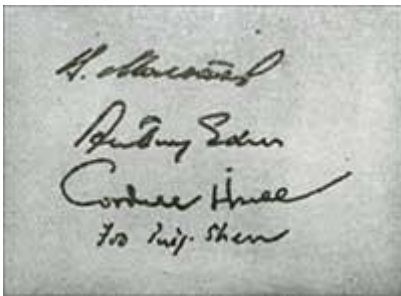 В. Молотов
Anthony Eden
Cordell Hull
Foo Ping-Sheung